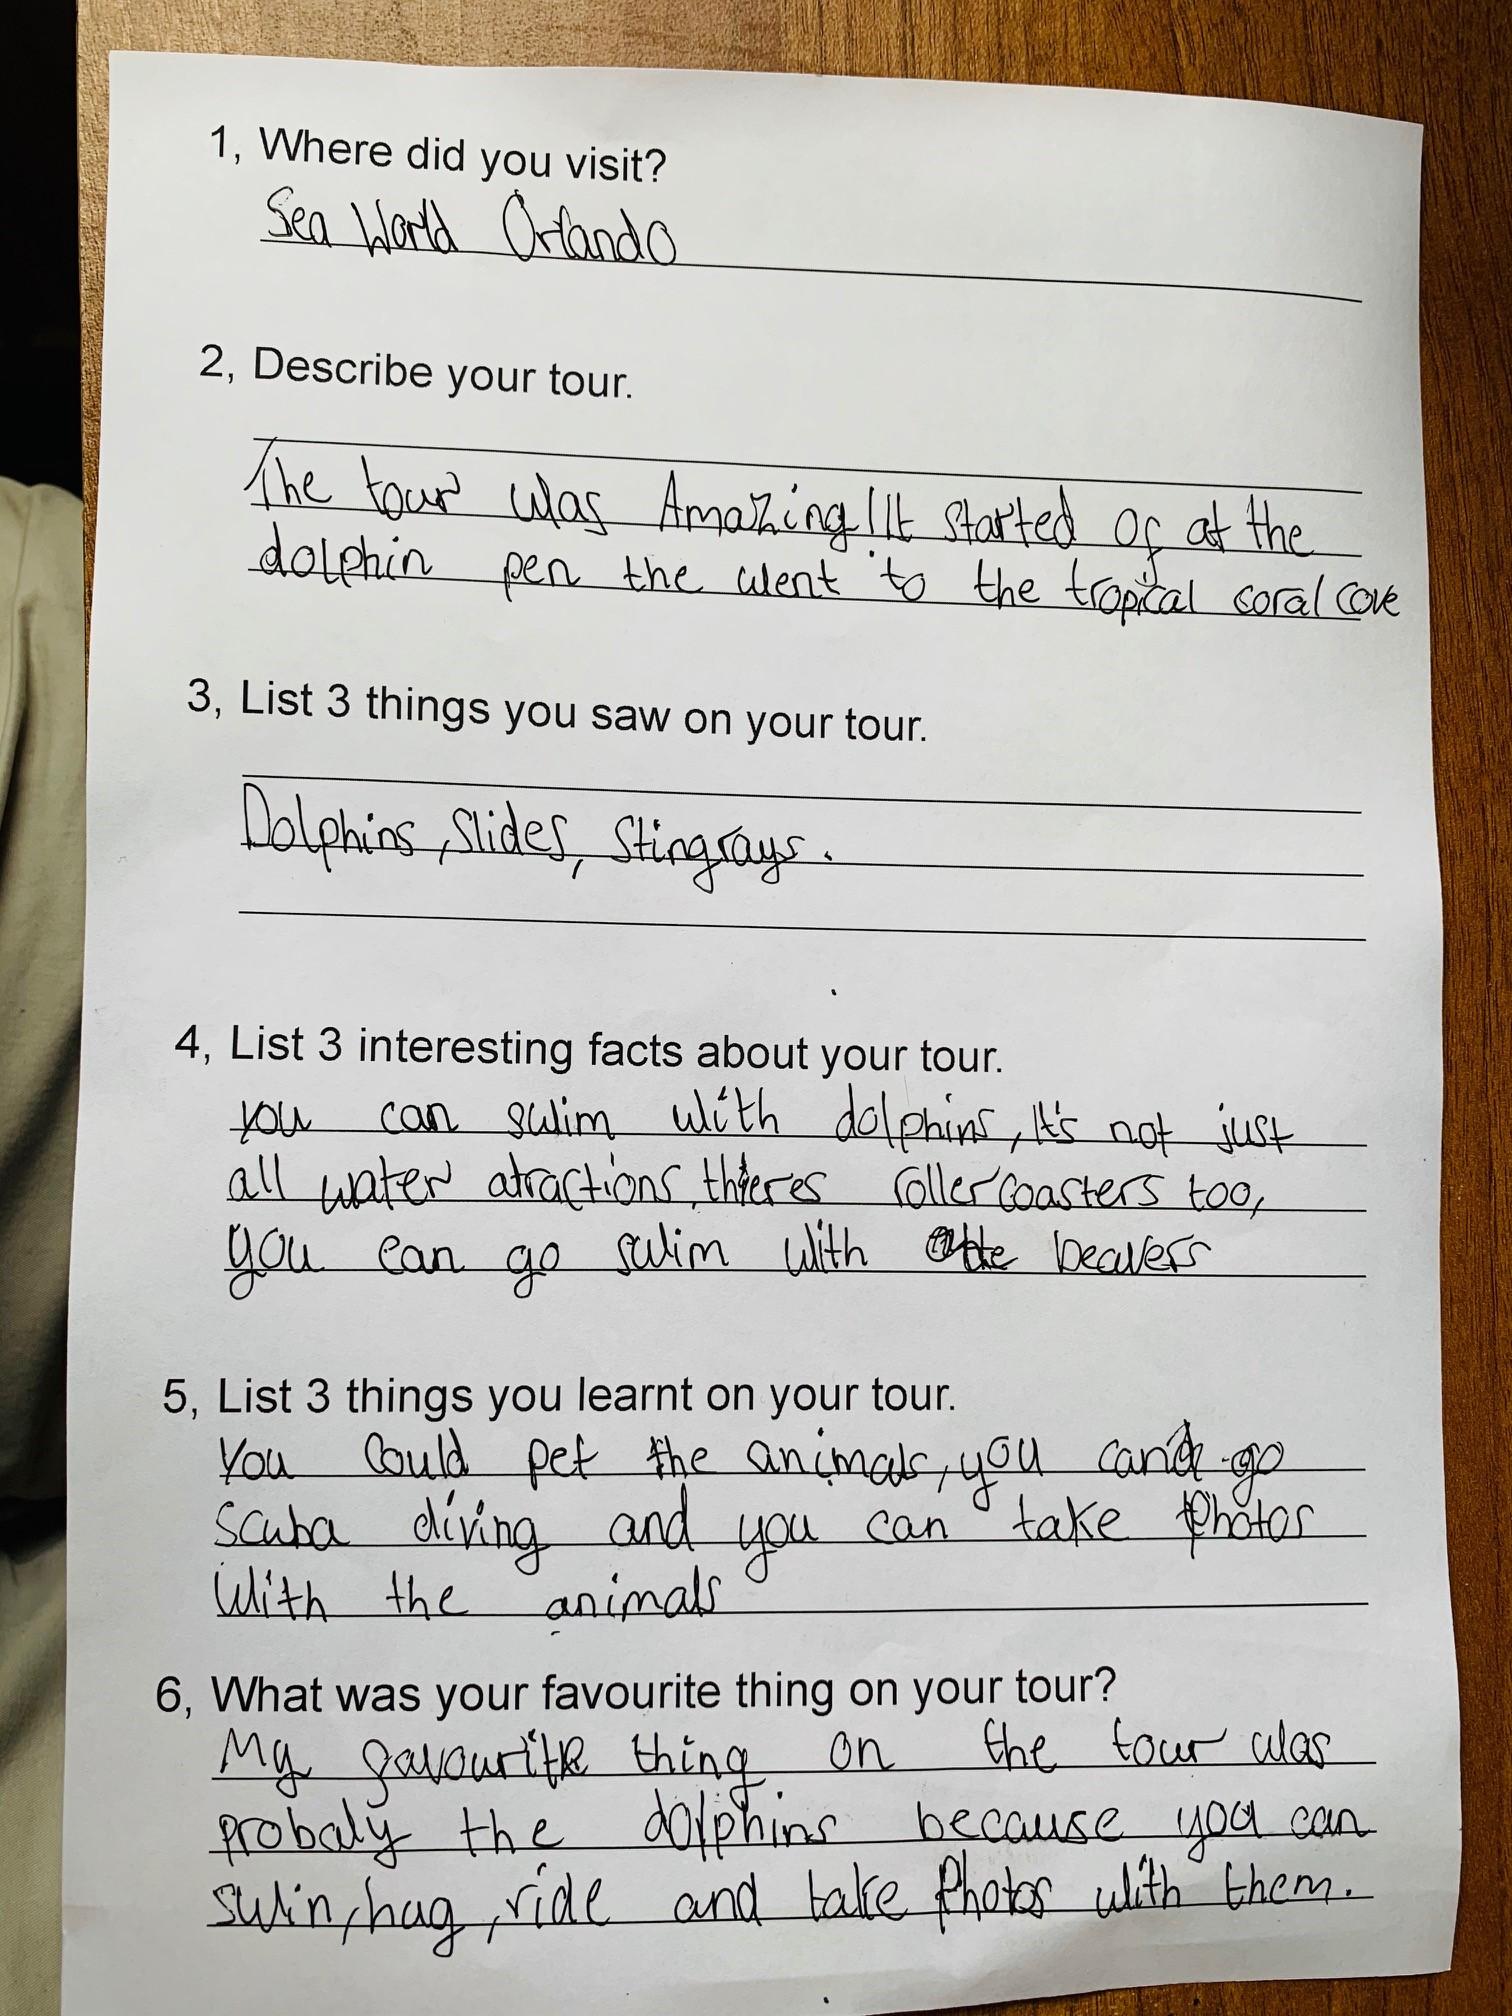 1, Where did you visit?
Sea World Orlando
2, Describe your tour.
The tour was Amazing! It started of at the
dolphin pen the went to the tropical coral cove
3, List 3 things you saw on your tour.
Dolphins, Slides, Stingrays.
4, List 3 interesting facts about your tour.
you can swim with dolphins, It's not just
all water atractions, theres roller coasters too,
you can go swim with the beavers
5, List 3 things you learnt on your tour.
You could pet the animals, you can go
scuba diving and you can take Photos
with the animals
6, What was your favourite thing on your tour?
My favourite thing on the tour was
probaly the dolphins because you can
swin, hug, ride and take Photos with them.